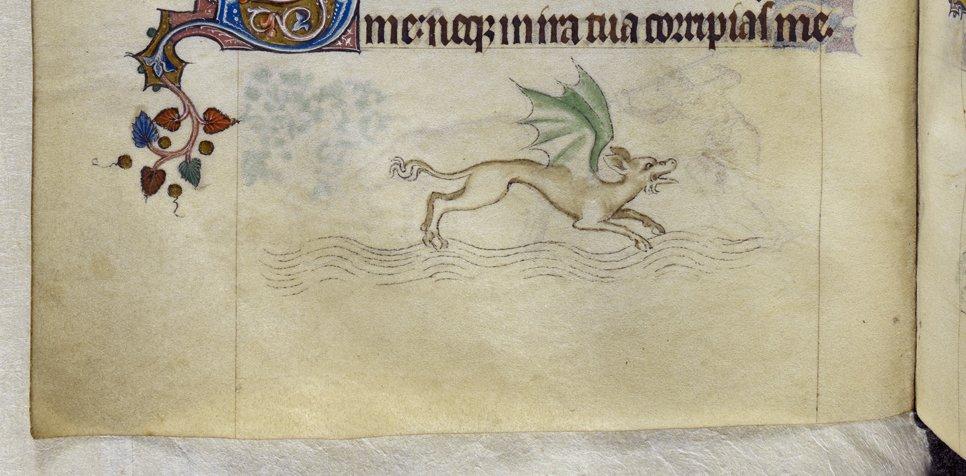 me: neqz in ira tua corripias me.